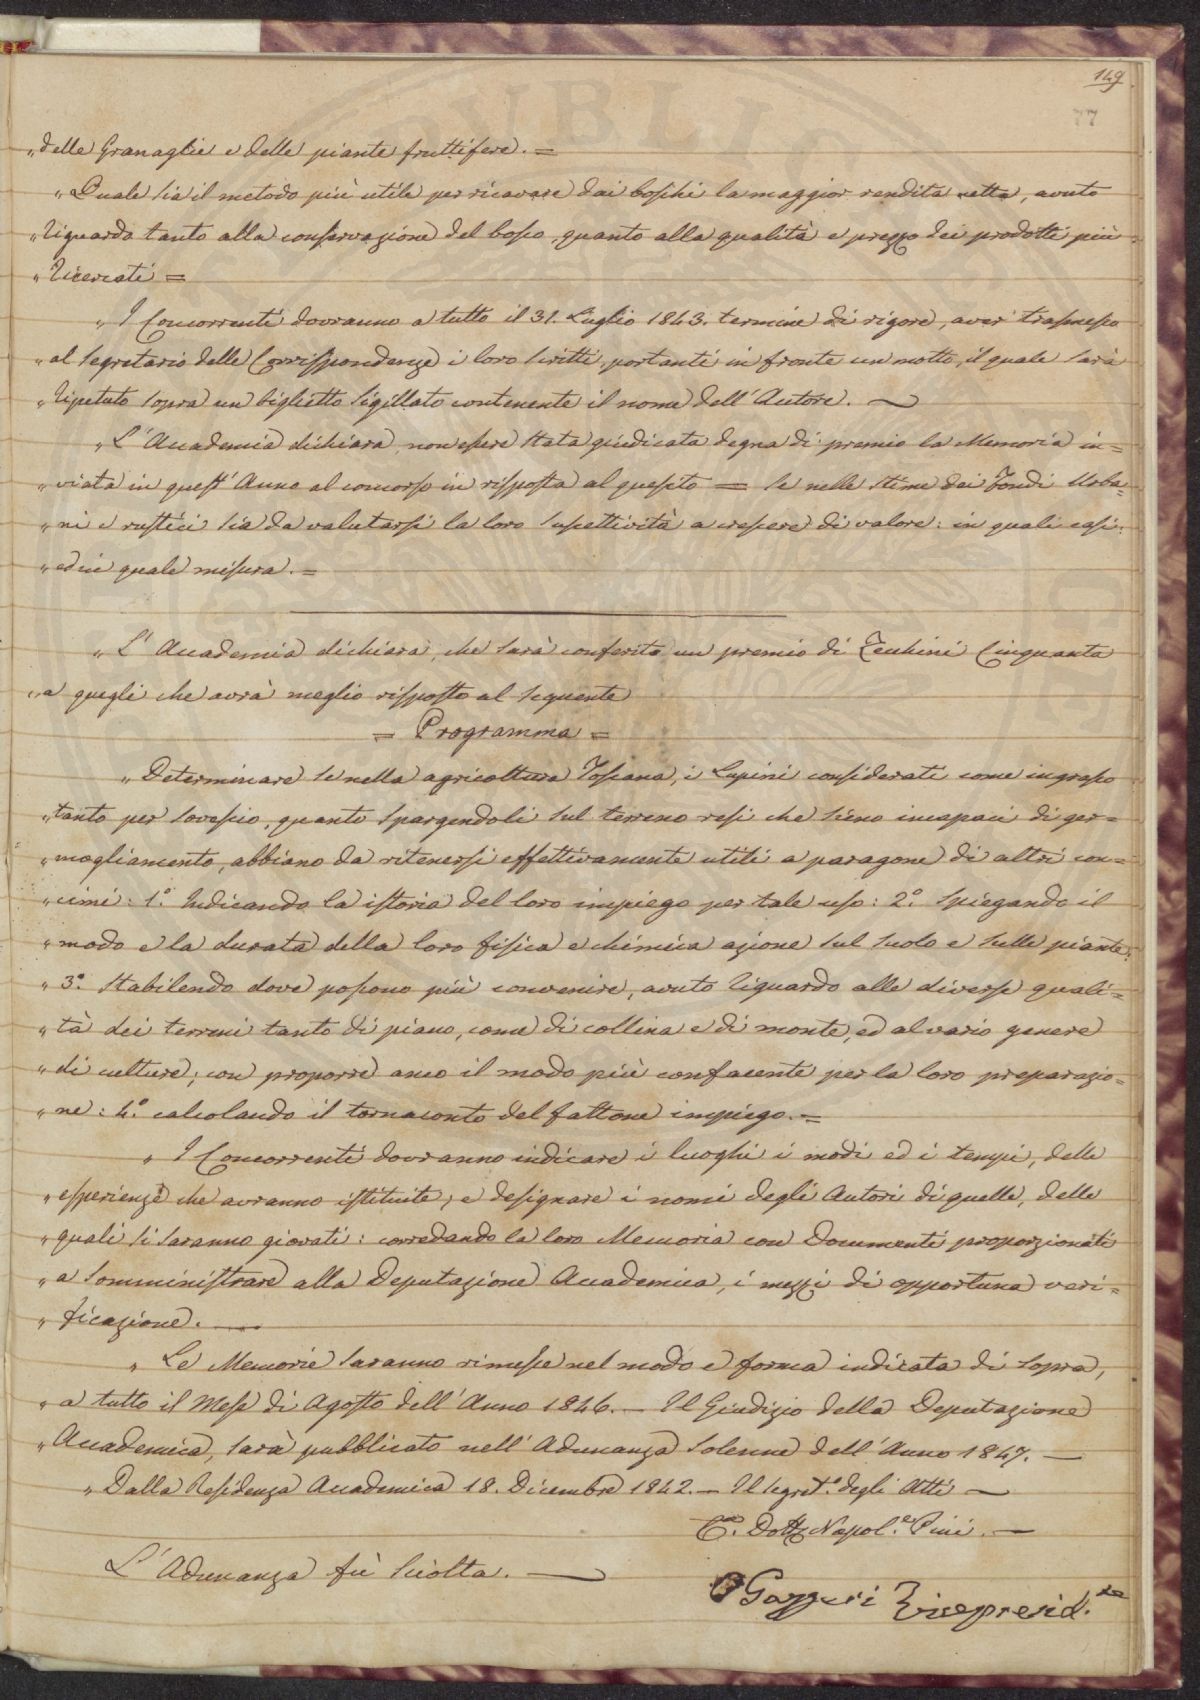 149
77
„delle Granaglie e delle piante fruttifere. =
„Quale sia il metodo più utile per ricavare dai boschi la maggior rendita netta, avuto
„riguardo tanto alla conservazione del bosco, quanto alla qualità e prezzo dei prodotti più
„ricercati =
„I Concorrenti dovranno a tutto il 31. Luglio 1843. termine di rigore, aver trasmesso
„al Segretario delle Corrispondenze i loro scritti, portanti in fronte un motto, il quale sarà
„ripetuto sopra un biglietto sigillato contenente il nome dell'Autore. —
„L'Accademia dichiara non essere stata giudicata degna di premio la Memoria in=
„viata in quest'Anno al concorso in risposta al quesito = Se nelle stime dei Fondi Urba=
„ni e rustici sia da valutarsi la loro suscettività a crescere di valore: in quali casi:
„ed in quale misura. =
„L'Accademia dichiara, che sarà conferito un premio di Zecchini Cinquanta
„a quegli che avrà meglio risposto al seguente
= Programma =
„Determinare se nella agricoltura Toscana, i Lupini considerati come ingrasso
„tanto per sovescio, quanto spargendoli sul terreno resi che sieno incapaci di ger=
„mogliamento, abbiano da ritenersi effettivamente utili a paragone di altri con=
„cimi: 1.° Indicando la istoria del loro impiego per tale uso: 2.° Spiegando il
„modo e la durata della loro fisica e chimica azione sul suolo e sulle piante:
„3.° Stabilendo dove possono più convenire, avuto riguardo alle diverse quali=
„tà dei terreni tanto di piano, come di collina e di monte, ed al vario genere
„di culture; con proporre anco il modo più confacente per la loro preparazio=
„ne: 4.° calcolando il tornaconto del fattone impiego. =
„I Concorrenti dovranno indicare i luoghi i modi ed i tempi, delle
„esperienze che avranno istituite; e designare i nomi degli Autori di quelle, delle
„quali si saranno giovati: corredando la loro Memoria con Documenti proporzionati
„a somministrare alla Deputazione Accademica, i mezzi di opportuna veri=
„ficazione. —
„Le Memorie saranno rimesse nel modo e forma indicata di sopra,
„a tutto il Mese di Agosto dell'Anno 1846. — Il Giudizio della Deputazione
„Accademica, sarà pubblicato nell'Adunanza solenne dell'Anno 1847. —
„Dalla Residenza Accademica 18. Dicembre 1842. — Il Segret.° degli Atti —
C. Dott. Napol.e Pini. —
L'Adunanza fù sciolta. —
Gazzeri Vicepresid.te